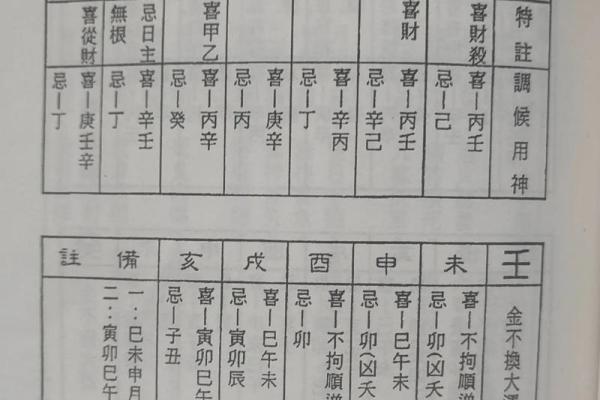 特註
喜財殺
喜財
喜甲乙
忌日主
無根
喜從財
調候用神
喜—丙壬
忌—己
喜—丙壬
忌—辛己
喜—辛丙
忌—丁
喜—庚辛
忌—丙
喜—丙辛
忌—癸
喜—辛壬
忌—丁
喜—庚壬辛
忌—丁
壬
金不換大
未
喜—不拘順
忌—卯(凶夭
申
喜—巳午未
忌—卯(凶夭
酉
喜—不拘順
忌—卯
戌
喜—巳午未
忌—寅卯辰
亥
喜—寅卯巳午
忌—子丑
備註
一:巳未申月
二:寅卯巳午